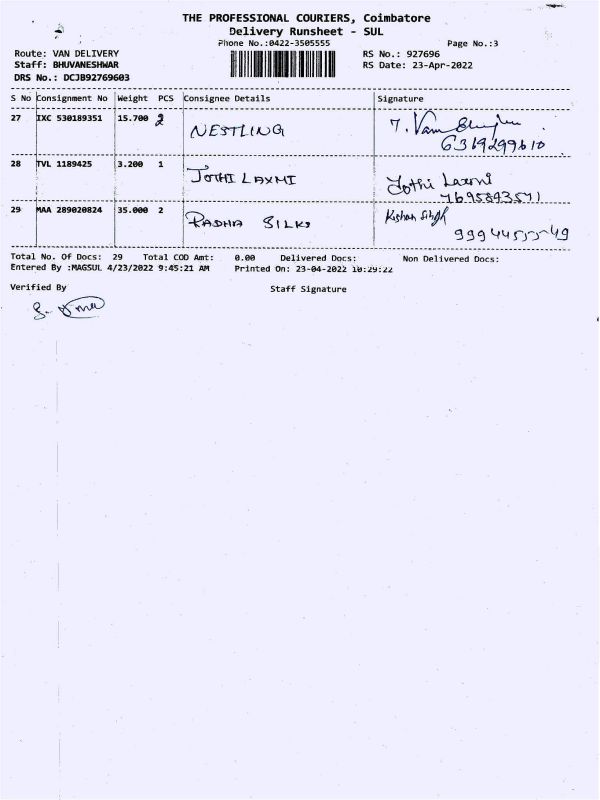 THE PROFESSIONAL COURIERS, Coimbatore
Delivery Runsheet - SUL
Phone No.:0422-3505555 Page No.:3
Route: VAN DELIVERY RS No.: 927696
Staff: BHUVANESHWAR RS Date: 23-Apr-2022
DRS No.: DCJB92769603
S No Consignment No Weight PCS Consignee Details Signature
27 IXC 530189351 15.700 2 NESTLING
6319299610
28 TVL 1189425 3.200 1 JOTHI LAXMI Jothi Laxmi
7695843571
29 MAA 289020824 35.000 2 RADHA SILKS Kishan Singh
9994455549
Total No. Of Docs: 29 Total COD Amt: 0.00 Delivered Docs: Non Delivered Docs:
Entered By :MAGSUL 4/23/2022 9:45:21 AM Printed On: 23-04-2022 10:29:22
Verified By Staff Signature